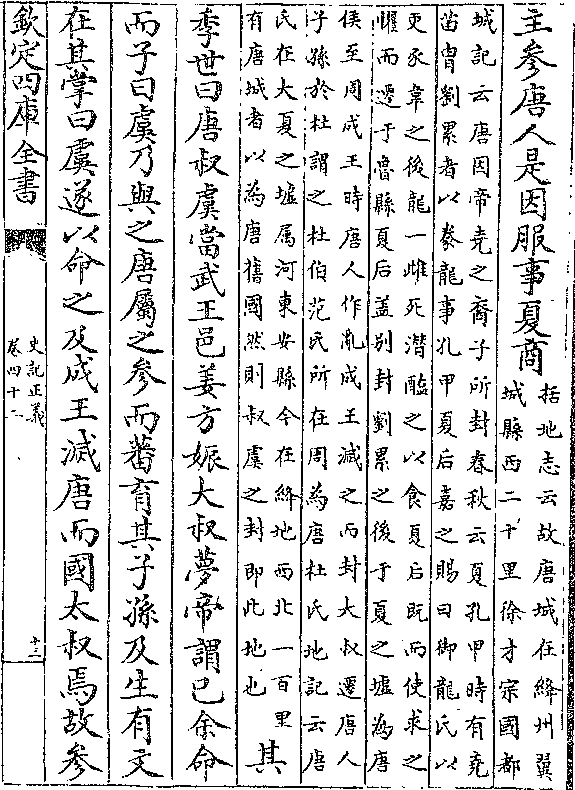 主參唐人是因服事夏商
括地志云故唐城在絳州翼
城縣西二十里徐才宗國都
城記云唐因帝堯之裔子所封春秋云夏孔甲時有堯
苗胄劉累者以豢龍事孔甲夏后嘉之賜曰御龍氏以
更豕韋之後龍一雌死潜醢之以食夏后既而使求之
懼而遷于魯縣夏后盖别封劉累之後于夏之墟為唐
侯至周成王時唐人作亂成王滅之而封大叔遷唐人
子孫於杜謂之杜伯范氏所在周為唐杜氏地記云唐
氏在大夏之墟屬河東安縣今在絳地西北一百里
有唐城者以為唐舊國然則叔虞之封即此地也
其
季世曰唐叔虞當武王邑姜方娠大叔夢帝謂已余命
而子曰虞乃與之唐屬之參而蕃育其子孫及生有文
在其掌曰虞遂以命之及成王滅唐而國太叔焉故參
欽定四庫全書
史記正義
卷四十二
十三